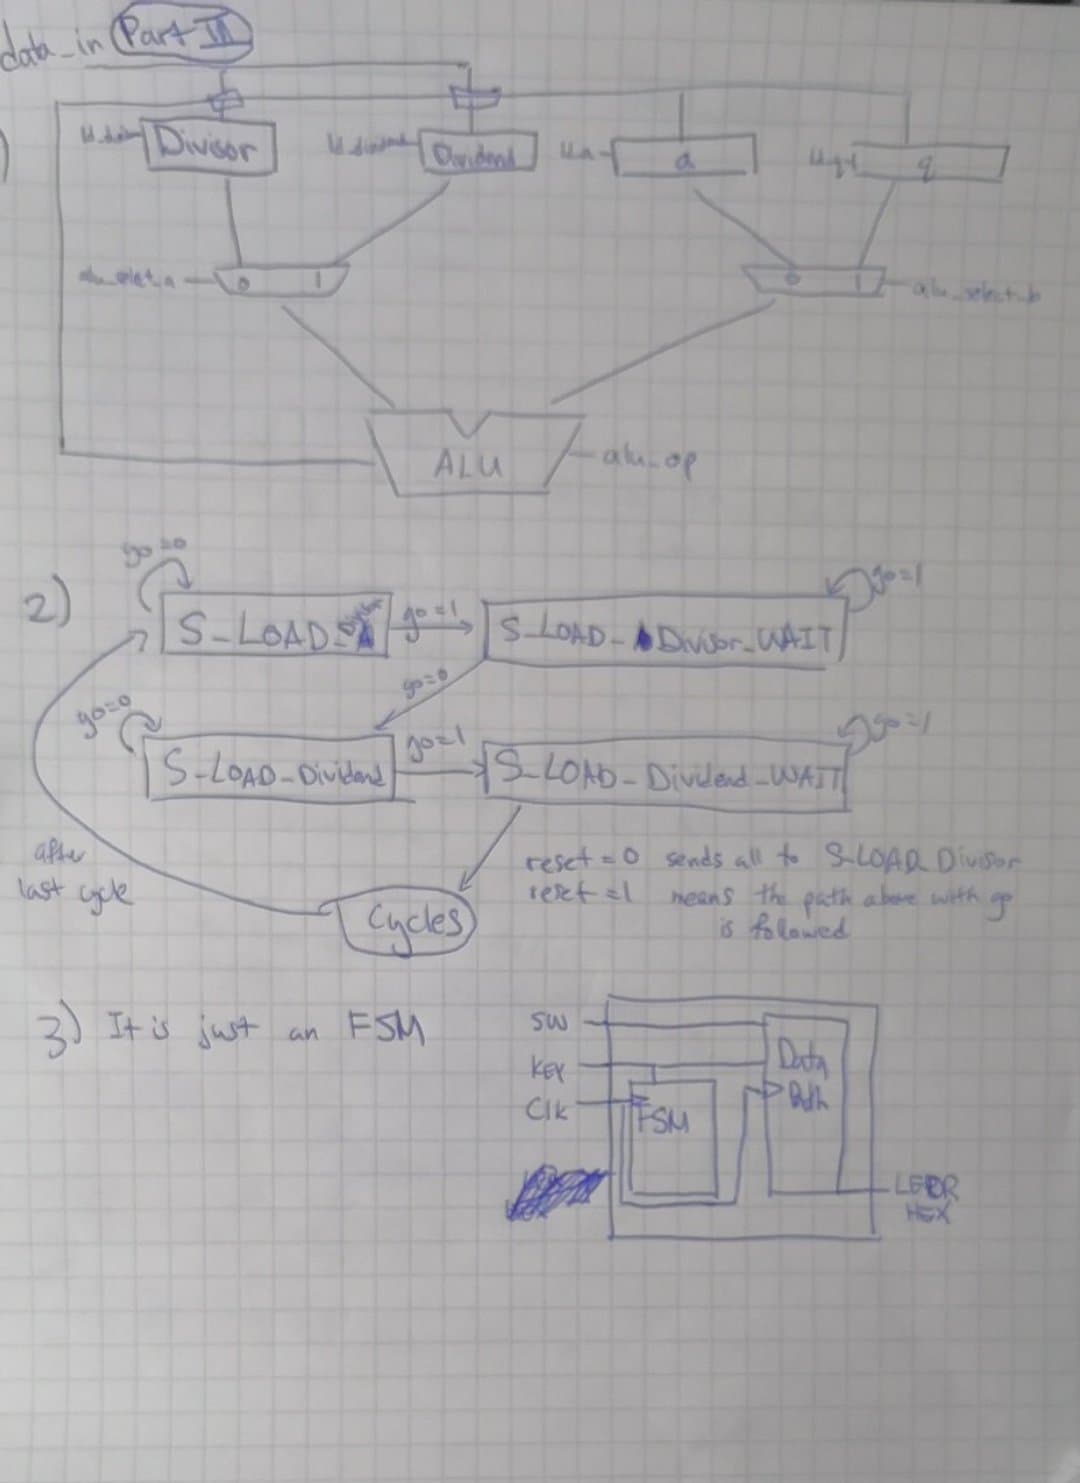 data_in Part III
)
Divisor
Dividend
a
q
0 1
0 1
alu_select_b
ALU
alu_op
2)
go=0
S_LOAD_
go=1
S_LOAD_Divisor_WAIT
go=1
go=0
go=0
S_LOAD_Dividend
go=1
S_LOAD_Dividend_WAIT
go=1
after
last cycle
Cycles
reset = 0 sends all to S_LOAD_Divisor
reset =1 means the path above with go
is followed
3) It is just an FSM
SW
KEY
Clk
FSM
Data
Path
LEDR
HEX